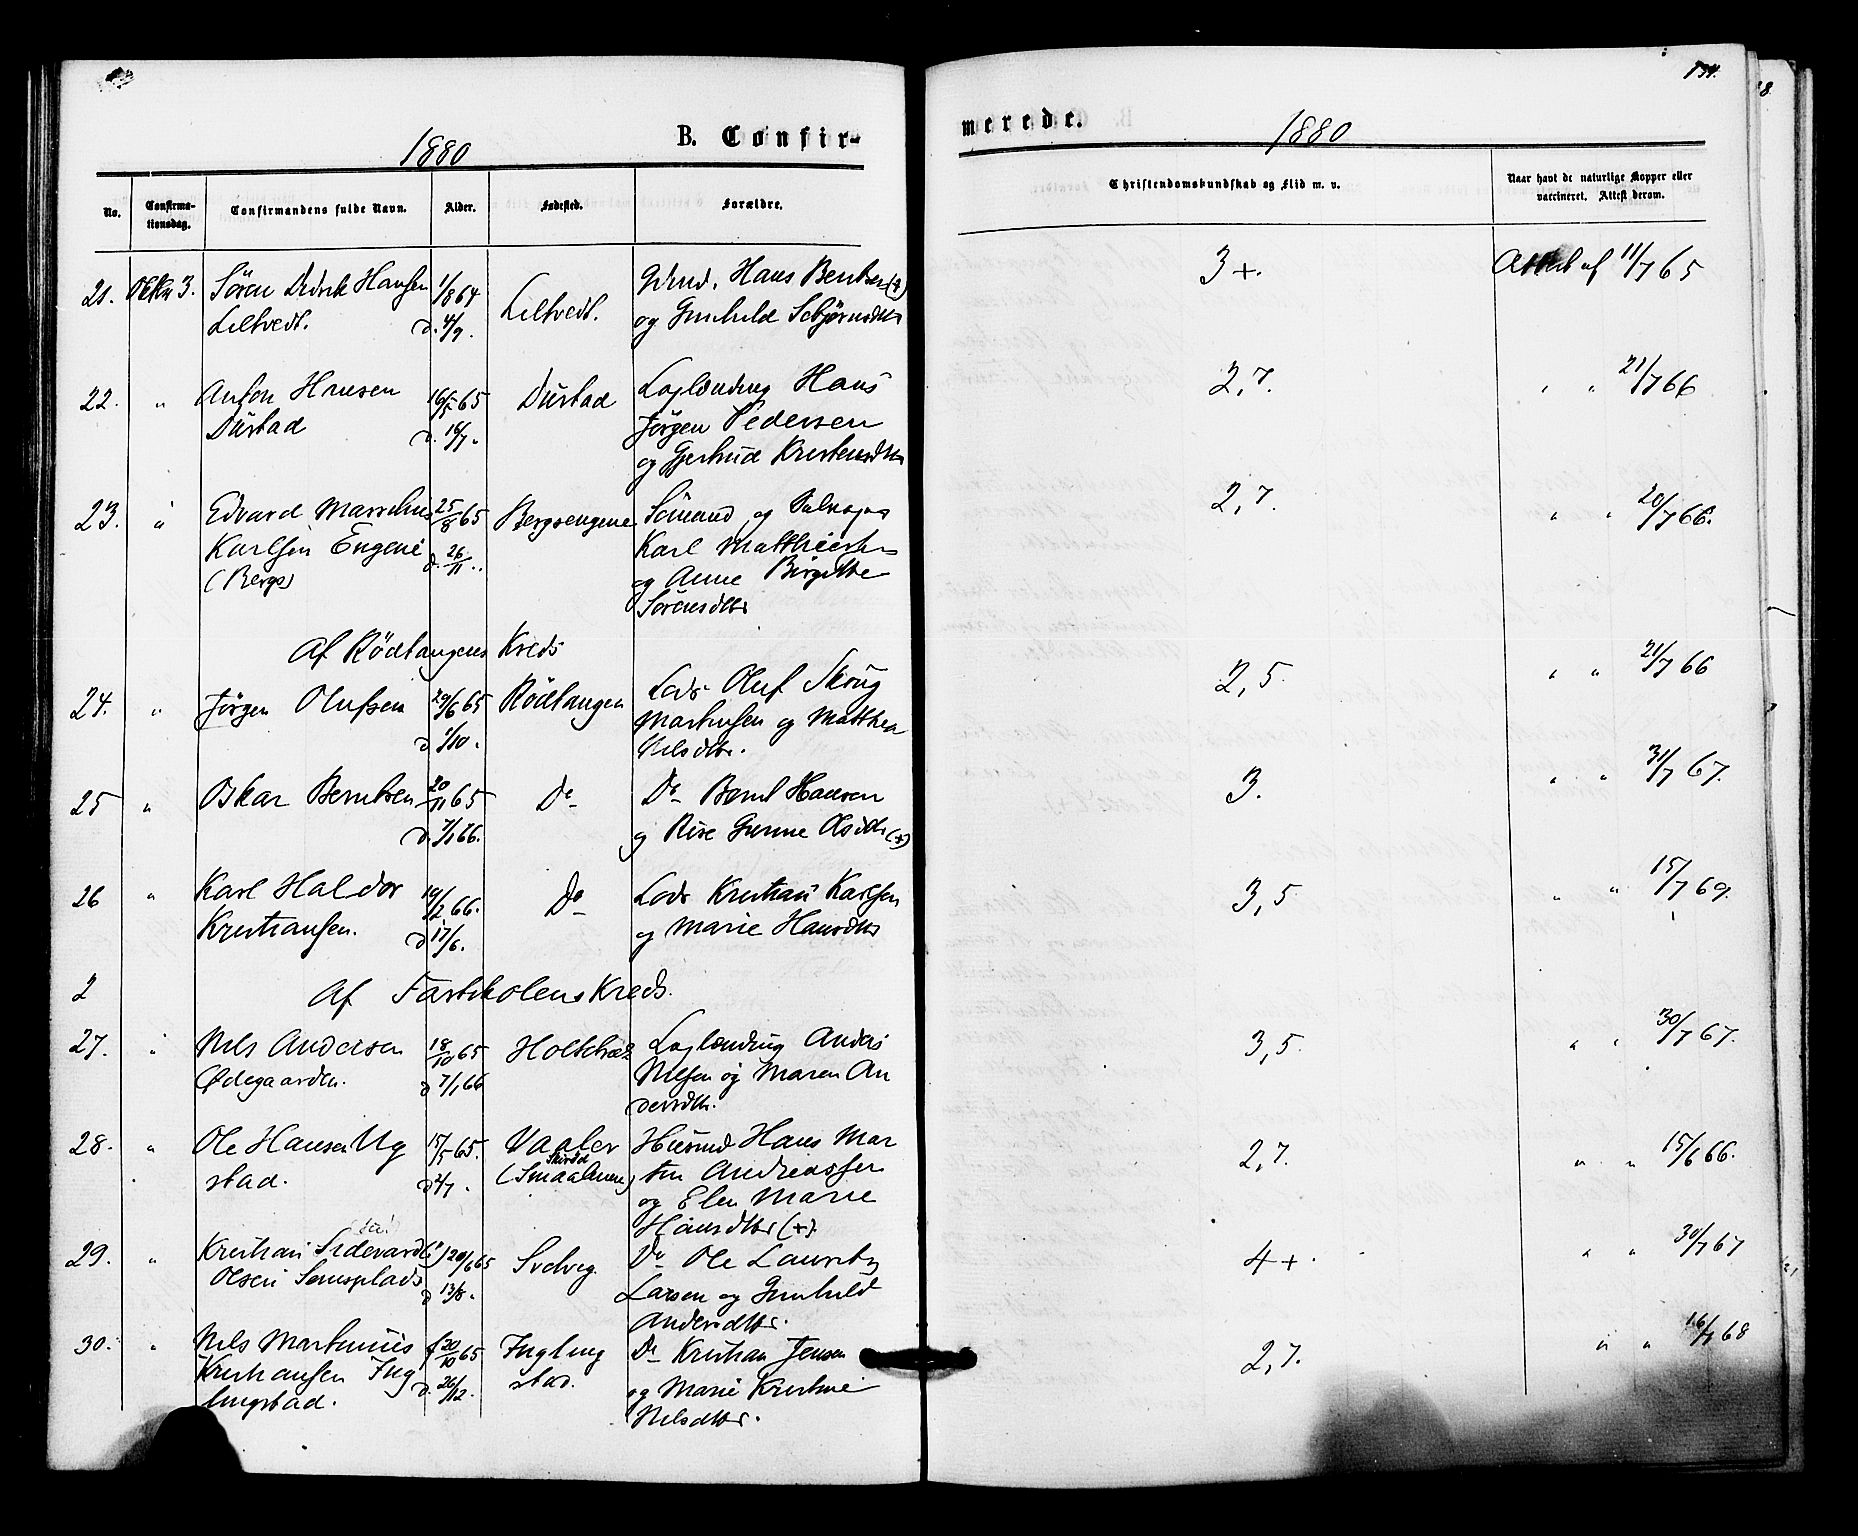 134.
1880
B. Confir-
merede.
1880
No.
Confirma-
tionsdag.
Confirmandens fulde Navn.
Alder.
Fødested.
Forældre.
Christendomskundskab og Flid m. v.
Naar havt de naturlige Kopper eller
vaccineret. Attest derom.
21. Oktbr 3. Sören Didrik Hansen 1/8 64 Hans Berntsen (+) 3+. Attest af 11/7 65
Liltvedt. d. 4/9. Liltvedt. og Gunhild
22. " Anton Hansen 16/5 65 Dústad Hans 2,7. " " 21/7 66
Dústad d. 16/7. Jörgen Pedersen
og Gjertrud Kristensdtr
23. " Edvard Marselius 25/8 65 Bergsengene Sömand og 2,7. " " 20/7 66.
Karlsen Engene d. 26/11. Karl Matthiesen
(Bergs) og Anne Birgitte
Sörensdttr
Af Rödtangens Kreds
24. " Jörgen Olufsen 29/6 65 Rödtangen Lods Oluf Skoug 2,5. " " 21/7 66
d. 1/10. Martinsen og Matthea
Nilsdttr.
25 " Oskar Berntsen 20/11 65 Do Do Bernt Hansen 3. " " 31/7 67.
d. 7/1 66. og Rise Gurine Olsdttr (+)
26 " Karl Haldor 19/2 66. Do Lods Kristian Karlsen 3,5 " " 15/7 69.
Kristiansen. d 17/6. og Marie Hansdttr
2 Af Fastskolens Kreds.
27. " Nils Andersen 18/10 65 Anders 3,5. " " 30/7 67.
Ødegaarden. d 7/1 66 Nilsen og Maren An
dersdttr.
28. " Ole Hansen Ug 15/5 65. Vaaler Húsmd Hans Mar 2,7. " " 15/6 66.
stad. d 4/7. (Smaalenene) tin Andreassen
og Elen Marie
Hansdttr (+).
29. " Kristian 20/6 65 Svelvig Do Ole Lauritz 4+. " " 30/7 67
Olsen d 13/8. Larsen og Gunhild
Andersdttr.
30. " Nils Martinius f 20/10 65 Ingling Do Kristian Jensen 2,7. " " 16/7 68
Kristiansen Ing d. 26/12. stad. og Marie Kristine
lingstad. Nilsdttr.